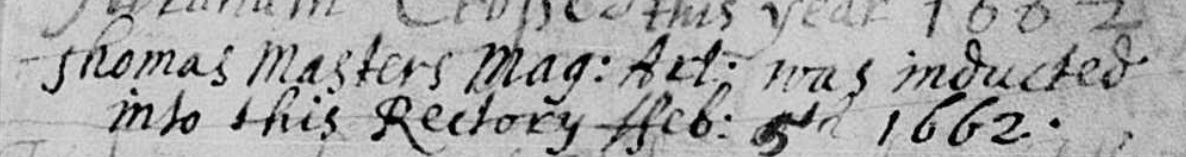 this year 1662
Thomas Masters Mag: Art: was inducted
into this Rectory ffeb: 5th 1662.